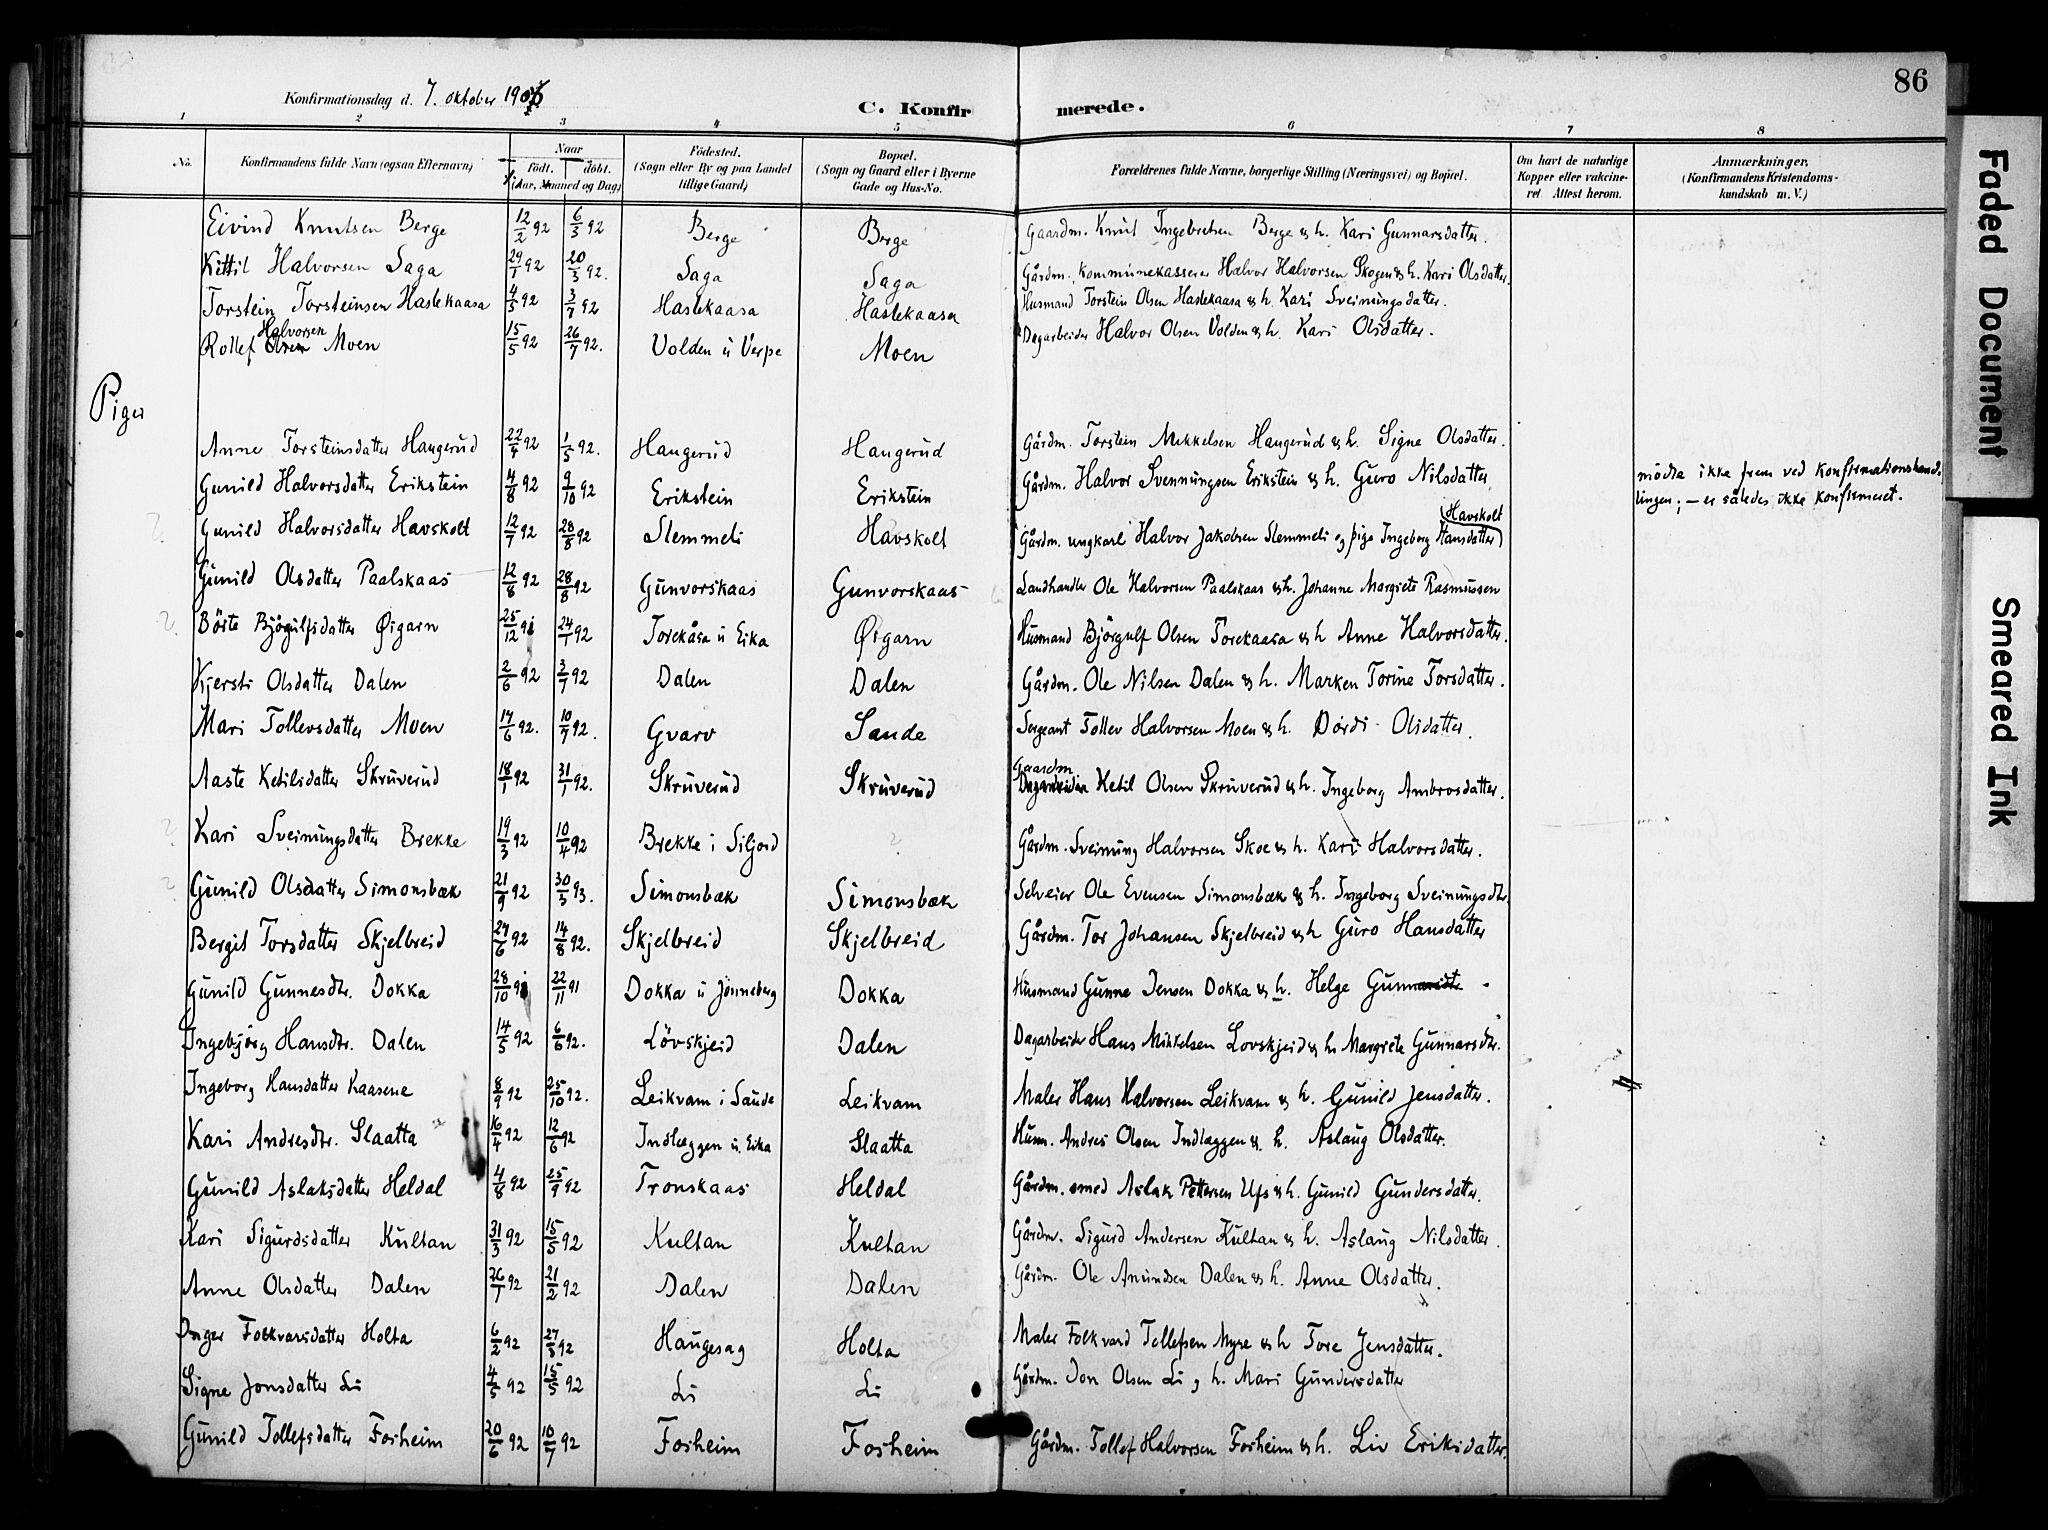 86
Konfirmationsdag d. 7. oktober 1906
C. Konfirmerede.
1 2 3 4 5 6 7 8
No. Konfirmandens fulde Navn (ogsaa Efternavn) Naar födt. döbt. (Aar, Maaned og Dag) Födested. (Sogn eller By og paa Landet tillige Gaard) Bopæl. (Sogn og Gaard eller i Byerne Gade og Hus-No. Forældrenes fulde Navne, borgerlige Stilling (Næringsvei) og Bopæl. Om havt de naturlige Kopper eller vakcineret Attest herom. Anmærkninger, (Konfirmandens Kristendomskundskab m. V.)
Eivind Knutsen Berge 12/2 92 6/3 92 Berge Berge Gaardm. Knut Ingebretsen Berge & h. Kari Gunnarsdatter.
Kittil Halvorsen Saga 29/1 92 20/3 92. Saga Saga Gårdm. Kommunekasserer Halvor Halvorsen Skogen & h. Kari Olsdatter.
Torstein Torsteinsen Haslekaasa 4/5 92 3/7 92 Haslekaasa Haslekaasa Husmand Torstein Olsen Haslekaasa & h. Kari Sveinungsdatter.
Rollef Halvorsen Olsen Moen 15/5 92 26/7 92. Volden u Verpe Moen Dagarbeider Halvor Olsen Volden & h. Kari Olsdatter.
Piger
Anne Torsteinsdatter Haugerud 22/4 92 1/5 92. Haugerud Haugerud Gårdm. Torstein Mikkelsen Haugerud & h. Signe Olsdatter.
Gunild Halvorsdatter Erikstein 4/8 92 9/10 92 Erikstein Erikstein Gårdm. Halvor Svennungsen Erikstein & h. Guro Nilsdatter. mödte ikke frem ved Konfirmationshandlingen; – er således ikke konfirmeret.
Gunild Halvorsdatter Havskolt 12/7 92 28/8 92 Slemmeli Havskolt Gårdm. ungkarl Halvor Jakobsen Slemmeli og pige Ingeborg Hansdatter Havskolt
Gunild Olsdatter Paalskaas 12/8 92 28/8 92 Gunvorskaas Gunvorskaas Landhandler Ole Halvorsen Paalskaas & h. Johanne Margrete Rasmussen
Börte Bjögulfsdatter Øigarn 25/12 91 24/1 92 Torekåsa u Eika Øigarn Husmand Björgulf Olsen Torekaasa & h Anne Halvorsdatter.
Kjersti Olsdatter Dalen 2/6 92 3/7 92 Dalen Dalen Gårdm. Ole Nilsen Dalen & h. Marken Torine Torsdatter.
Mari Tollevsdatter Moen 17/6 92. 10/7 92. Gvarv Sande Sergeant Tollev Halvorsen Moen & h. Dordi Olsdatter.
Aaste Ketilsdatter Skruverud 18/1 92 31/1 92. Skruverud Skruverud Gaardm Dagarbeider Ketil Olsen Skruverud & h. Ingeborg Ambrosdatter.
Kari Sveinungsdatter Brekke 19/3 92 10/4 92 Brekke i Siljord ? Gårdm. Sveinung Halvorsen Skoe & h. Kari Halvorsdatter.
Gunild Olsdatter Simonsbæk 21/9 92 30/5 93. Simonsbæk Simonsbæk Selveier Ole Evensen Simonsbæk & h. Ingeborg Sveinungsdtr.
Bergit Torsdatter Skjelbreid 24/6 92 14/8 92. Skjelbreid Skjelbreid Gårdm. Tor Johansen Skjelbreid & h Guro Hansdatter
Gunild Gunnesdtr. Dokka 28/10 91 22/11 91 Dokka u Jönneberg Dokka Husmand Gunne Jensen Dokka & h. Helge
Ingebjørg Hansdtr. Dalen 14/5 92 6/6 92. Lövskjeid Dalen Dagarbeider Hans Mikkelsen Lovskjeid & h. Margrete Gunnarsdtr.
Ingeborg Hansdatter Kaasene 8/9 92 25/10 92. Leikvam i Saude Leikvam Maler Hans Halvorsen Leikvam & h. Gunild Jensdatter.
Kari Andresdtr. Slaatta 16/4 92 12/6 92 Indlæggen u. Eika Slaatta Husm. Andres Olsen Indlæggen & h. Aslaug Olsdatter.
Gunild Aslaksdatter Heldal 4/8 92 25/9 92 Tronskaas Heldal Gårdm. smed Aslak Pettersen Ufs & h. Gunild Gundersdatter.
Kari Sigurdsdatter Kultan 31/3 92 15/5 92 Kultan Kultan Gårdm. Sigurd Andersen Kultan & h. Aslaug Nilsdatter.
Anne Olsdatter Dalen 26/1 92 21/2 92 Dalen Dalen Gårdm. Ole Anundsen Dalen & h. Anne Olsdatter.
Inger Folkvarsdatter Holta 6/2 92 27/3 92 Haugesag Holta Maler Folkvard Tollefsen Myre & h Tore Jensdatter.
Signe Jonsdatter Li 4/5 92 15/5 92 Li Li Gårdm. Jon Olsen Li & h. Mari Gundersdatter
Gunild Tollefsdatter Forheim 20/6 92 10/7 92 Forheim Forheim Gårdm. Tollef Halvorsen Forheim & h. Liv Eriksdatter.
Faded Document
Smeared Ink